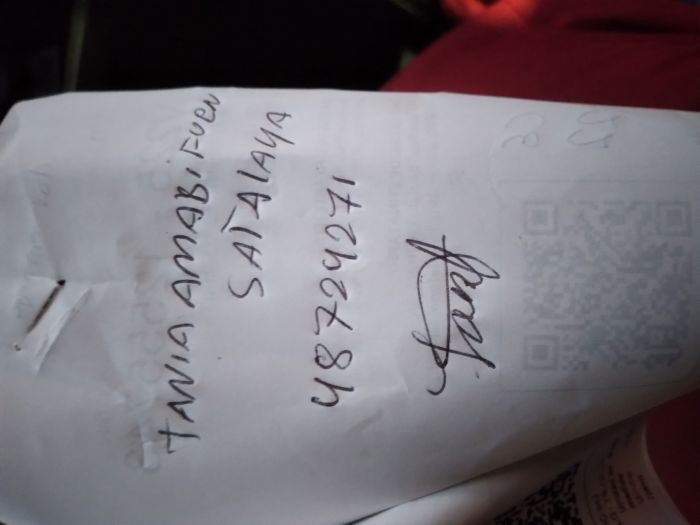 TANIA AMABiFUEN
SATALAYA
48724271